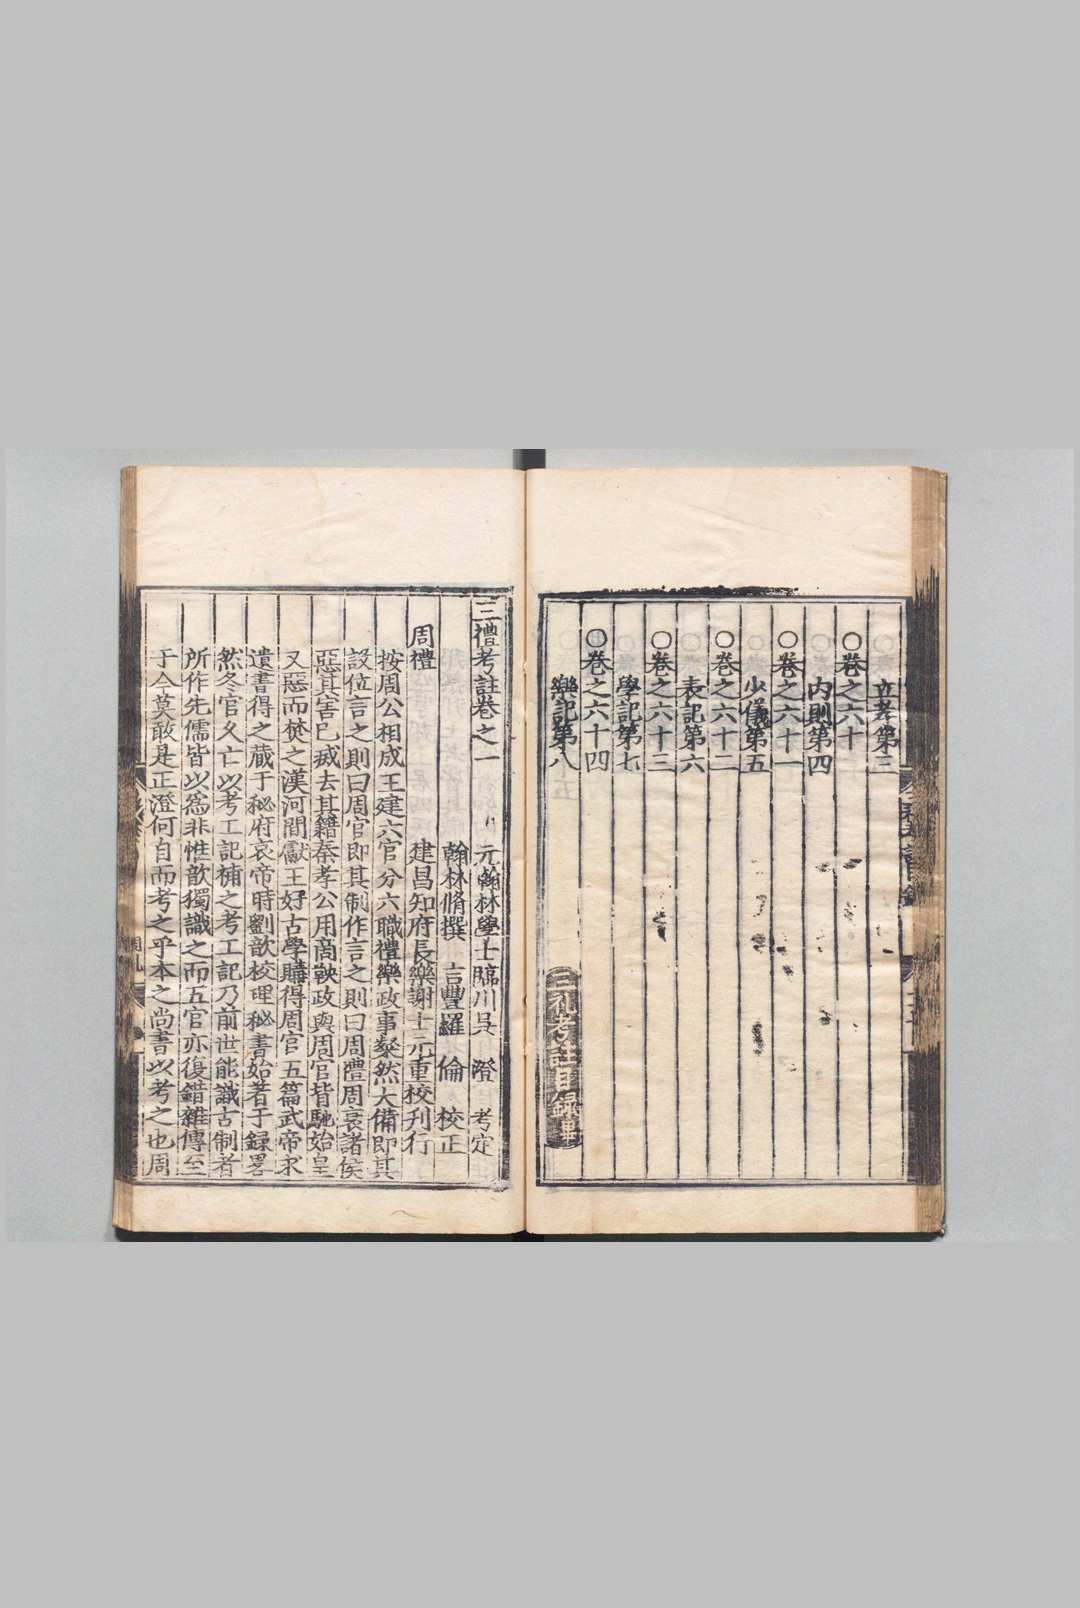 立孝第三
○卷之六十
内則第四
○卷之六十一
少儀第五
○卷之六十二
表記第六
○卷之六十三
學記第七
○卷之六十四
樂記第八
三礼考註目録畢
三禮考註卷之一
元翰林學士臨川吳 澄 考定
翰林脩撰 吉豐羅 倫 校正
周禮 建昌知府長樂謝士元重校刊行
按周公相成王建六官分六職禮樂政事粲然大備即其
設位言之則曰周官即其制作言之則曰周禮周衰諸侯
惡其害已㓕去其籍秦孝公用商鞅政與周官皆馳始皇
又惡而焚之漢河間獻王好古學購得周官五篇武帝求
遺書得之藏于秘府哀帝時劉歆校理秘書始著于録畧
然冬官久亡以考工記補之考工記乃前世能識古制者
所作先儒皆以爲非惟歆獨識之而五官亦復錯雜傳至
于今莫敢是正澄何自而考之乎本之尚書以考之也周